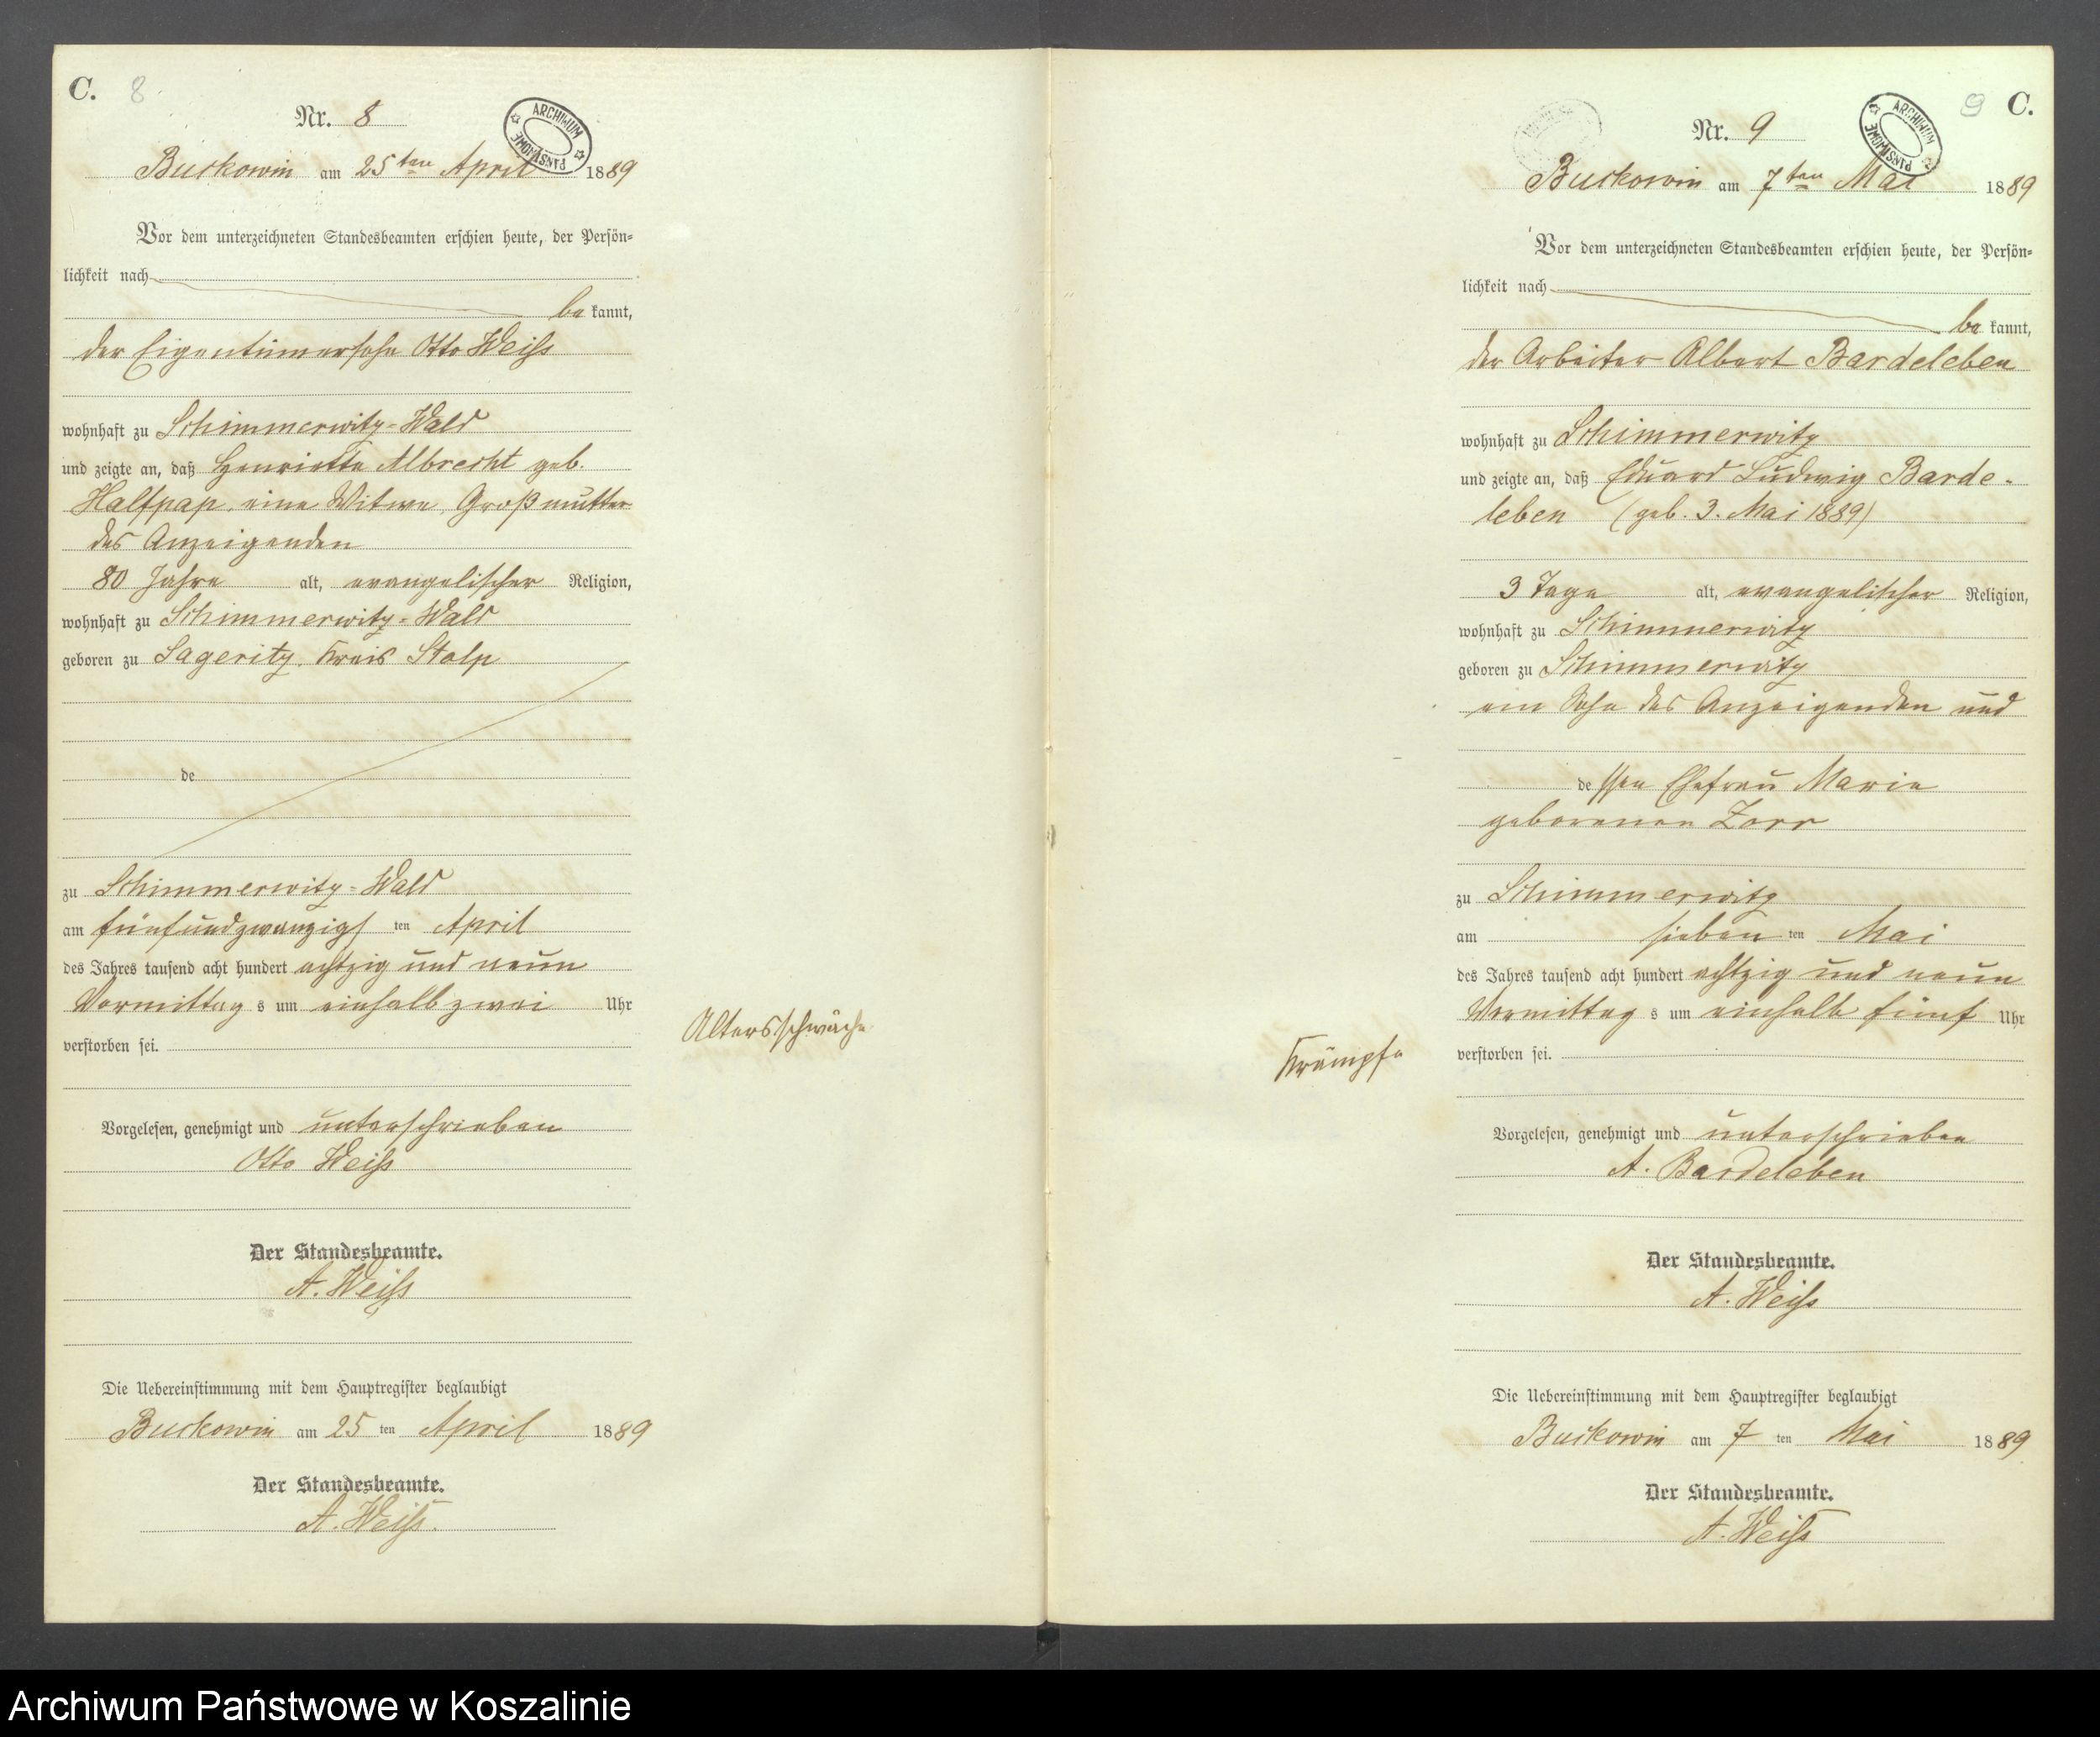 C. 8
Nr. 8
ARCHIWUM PAŃSTWOWE
Buckowin am 25ten April 1889
Vor dem unterzeichneten Standesbeamten erschien heute, der Persön-
lichkeit nach
be kannt,
der Eigentümersohn Otto Weiß
wohnhaft zu Schimmerwitz-Wald
und zeigte an, daß Henriette Albrecht geb.
Halfpap, eine Witwe, Großmutter
des Anzeigenden
80 Jahre alt, evangelischer Religion,
wohnhaft zu Schimmerwitz-Wald
geboren zu Sageritz, Kreis Stolp
de
zu Schimmerwitz-Wald
am fünfundzwanzigs ten April
des Jahres tausend acht hundert achtzig und neun
Vormittag s um einhalb zwei Uhr
verstorben sei.
Altersschwäche
Vorgelesen, genehmigt und unterschrieben
Otto Weiß
Der Standesbeamte.
A. Weiß
Die Uebereinstimmung mit dem Hauptregister beglaubigt
Buckowin am 25 ten April 1889
Der Standesbeamte.
A. Weiß.
9 C.
Nr. 9
ARCHIWUM PAŃSTWOWE
Buckowin am 7ten Mai 1889
Vor dem unterzeichneten Standesbeamten erschien heute, der Persön-
lichkeit nach
be kannt,
der Arbeiter Albert Bardeleben
wohnhaft zu Schimmerwitz
und zeigte an, daß Eduard Ludwig Barde-
leben (geb. 3. Mai 1889)
3 Tage alt, evangelischer Religion,
wohnhaft zu Schimmerwitz
geboren zu Schimmerwitz
ein Sohn des Anzeigenden und
de ssen Ehefrau Marie
geborenen Zorr
zu Schimmerwitz
am sieben ten Mai
des Jahres tausend acht hundert achtzig und neun
Vormittag s um einhalb fünf Uhr
verstorben sei.
Krämpfe
Vorgelesen, genehmigt und unterschrieben
A. Bardeleben
Der Standesbeamte.
A. Weiß
Die Uebereinstimmung mit dem Hauptregister beglaubigt
Buckowin am 7 ten Mai 1889
Der Standesbeamte.
A. Weiß
Archiwum Państwowe w Koszalinie